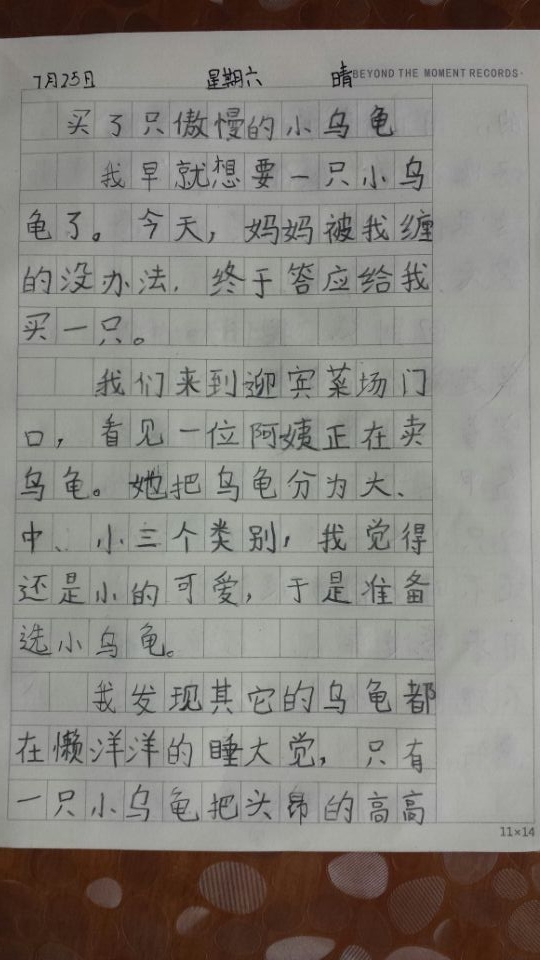 7月25日 星期六 晴 BEYOND THE MOMENT RECORDS·
买了只傲慢的小乌龟
我早就想要一只小乌
龟了。今天，妈妈被我缠
的没办法，终于答应给我
买一只。
我们来到迎宾菜场门
口，看见一位阿姨正在卖
乌龟。她把乌龟分为大、
中、小三个类别，我觉得
还是小的可爱，于是准备
选小乌龟。
我发现其它的乌龟都
在懒洋洋的睡大觉，只有
一只小乌龟把头昂的高高
11×14